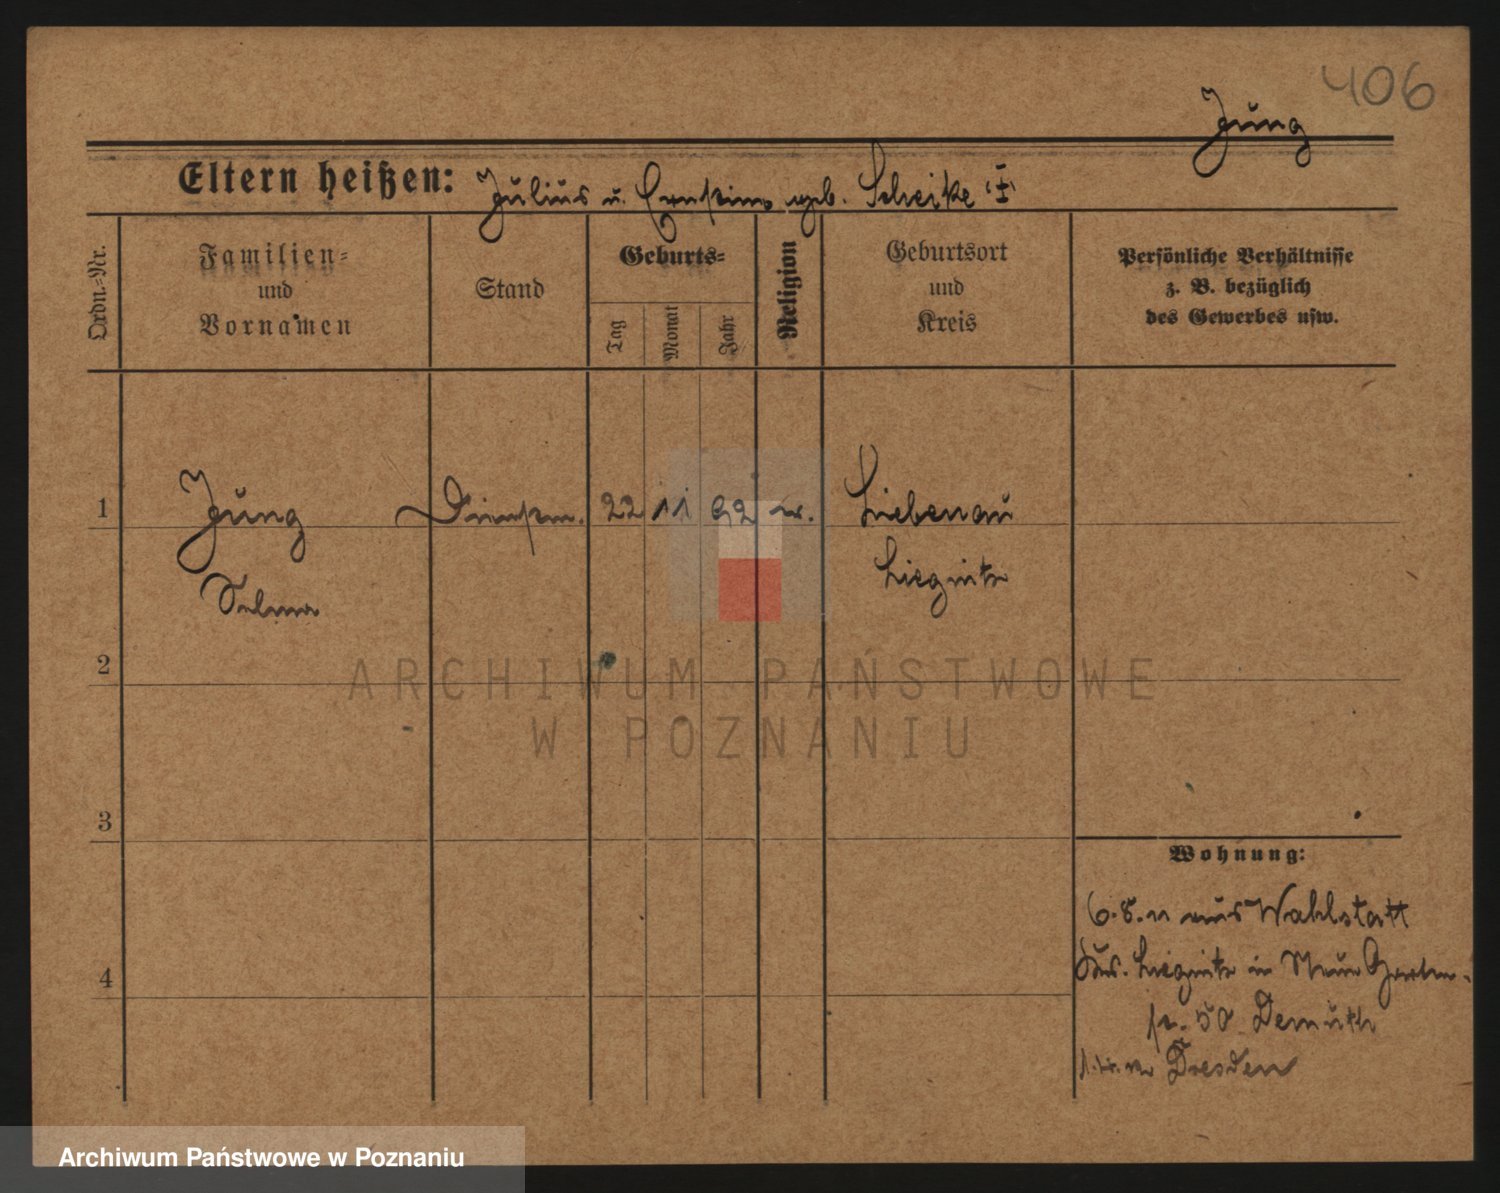 406
Jung
Eltern heißen: Julius u. Ernestine geb. Scheike
Ordn.-Nr.
Familien-
und
Vornamen
Stand
Geburts-
Tag
Monat
Jahr
Religion
Geburtsort
und
Kreis
Persönliche Verhältnisse
z. B. bezüglich
des Gewerbes usw.
1
Jung
Dienstm. 22 11 92 ev. Liebenau
Liegnitz
Selma
2
ARCHIWUM PAŃSTWOWE
W POZNANIU
3
Wohnung:
6.8.11 aus Wahlstatt
Krs. Liegnitz in Neue Garten-
str. 50 Demuth
Dresden
4
Archiwum Państwowe w Poznaniu